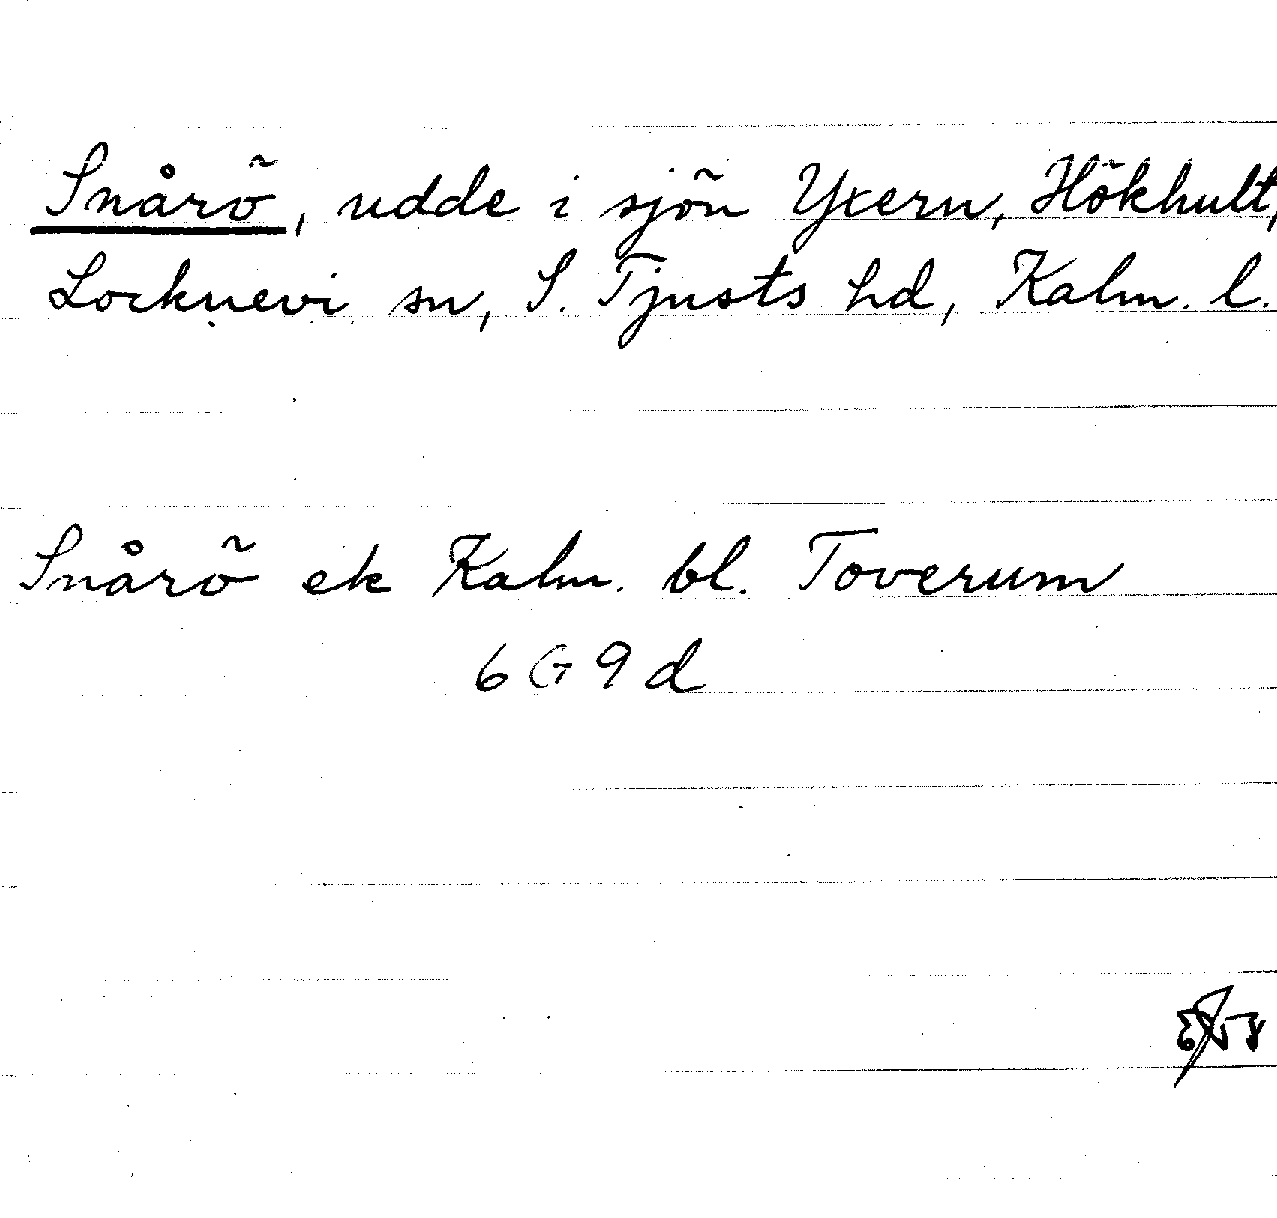 Snårö, udde i sjön Yxern, Hökhult,
Locknevi sn, S. Tjusts hd, Kalm. l.
Snårö ek Kalm. bl. Toverum
6 G 9 d